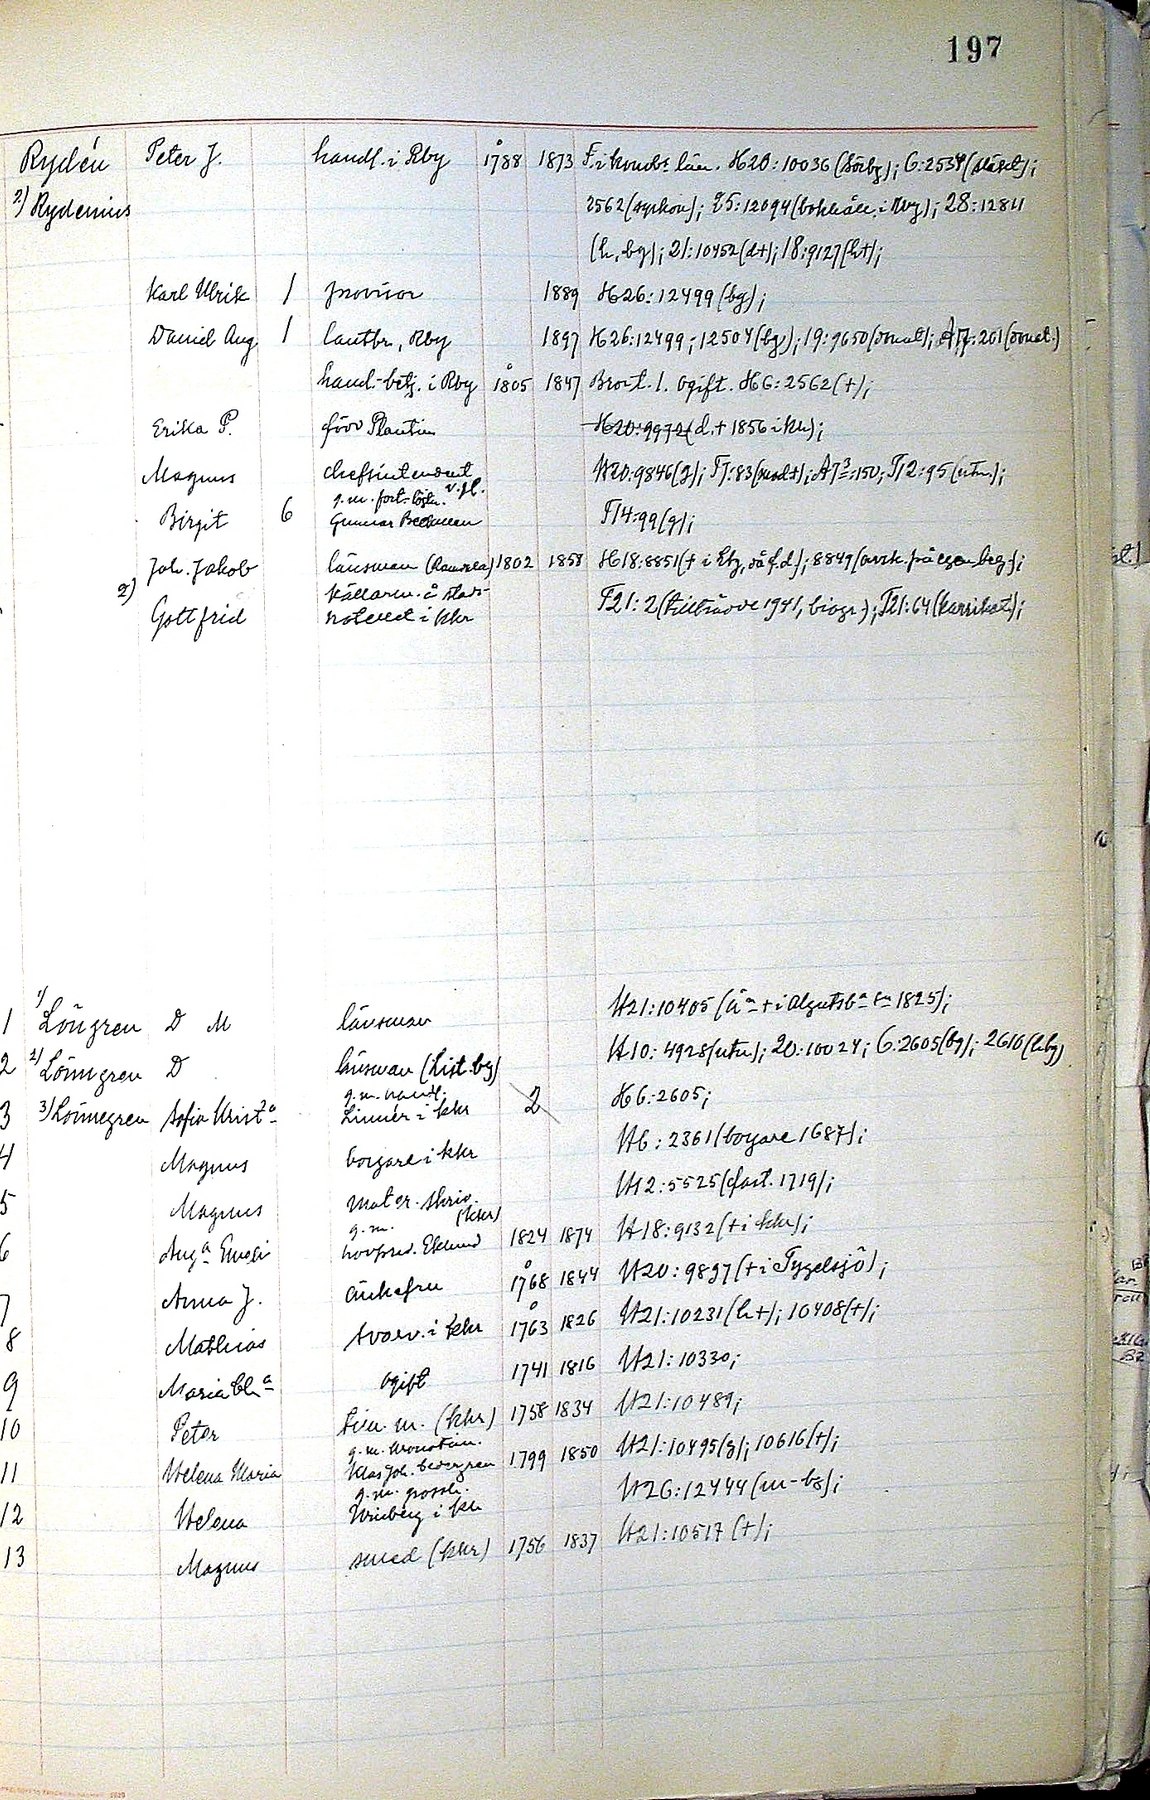 197
Rydén Peter J. handl. i Rby 1788 1873 F. i Kronobs län. H20:10036 (Sörby); 6:2534 (släkt);
2) Rydenius 2562 (syskon); 25:12094 (bokhåll. i Rby); 28:12811
(h, bg); 21:10452 (d+); 18:9127 (h+);
Karl Ulrik 1 provisor 1889 H26:12499 (bg);
David Aug. 1 lantbr, Rby 1897 H26:12499; 12504 (bg); 19:9650 (donat); A17:201 (donat.)
handl.-betj. i Rby 1805 1847 Brort. 1. Ogift. H6:2562 (+);
Erika P. född Plantin H20:9972 (d. + 1856 i kkr);
Magnus chefsintendent H20:9846 (g); F7:83 (mod+); A7 3:150; F12:95 (utn.);
v. fl.
g.m. fort.
Birgit 6 Gunnar F14:99 (g);
Joh. Jakob länsman (Ransåla) 1802 1858 H18:8851 (+ i Etg, då f.d.); 8849 (ansk. på egen beg.);
2) källarm. å stads-
Gottfrid hotellet i kkr F21:2 (tillträde 1941, biogr.); F21:64 (karrikat);
1 1) Löngren D M länsman H21:10405 (ä + i Algutsb 1825);
2 2) Lönngren D länsman (List.by) H10:4928 (utn.); 20:10024; 6:2605 (bg); 2610 (h.bg)
g.m. handl.
3 3) Lönnegren Sofia Krist a Linnér i kkr 2 H6:2605;
4 Magnus borgare i kkr H6:2361 (borgare 1687);
5 Magnus mater. skriv. (kkr) H12:5525 (fast. 1719);
g.m.
6 Aug a Emeli hovpred. Eklund 1824 1874 H18:9132 (+ i kkr);
7 Anna J. änkefru 1768 1844 H20:9897 (+ i Tygelsjö);
8 Mathias svarv. i kkr 1763 1826 H21:10231 (h+); 10408 (+);
9 Maria Chr a ogift 1741 1816 H21:10330;
10 Peter tim. m. (kkr) 1758 1834 H21:10489;
g.m. kronotim.
11 Helena Maria Klas Joh. Cedergren 1799 1850 H21:10495 (g); 10616 (+);
g.m. grossh.
12 Helena i kkr H26:12444 (m-bg);
13 Magnus smed (kkr) 1756 1837 H21:10517 (+);